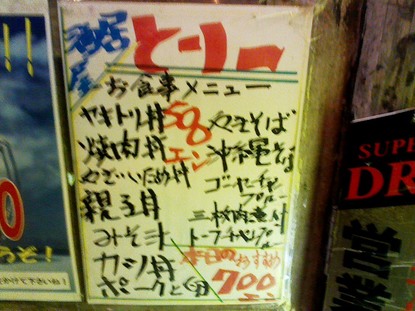 居酒屋
とーりー
お食事メニュー
ヤキトリ丼
焼肉丼
やさいいため丼
親玉丼
みそ汁
カツ丼
ポークと卵
580
エン
やきそば
沖縄そば
ゴーヤーチャンプルー
三枚肉煮付
トーフチャンプルー
本日のおすすめ
700
エン
SUPE
DR
営業